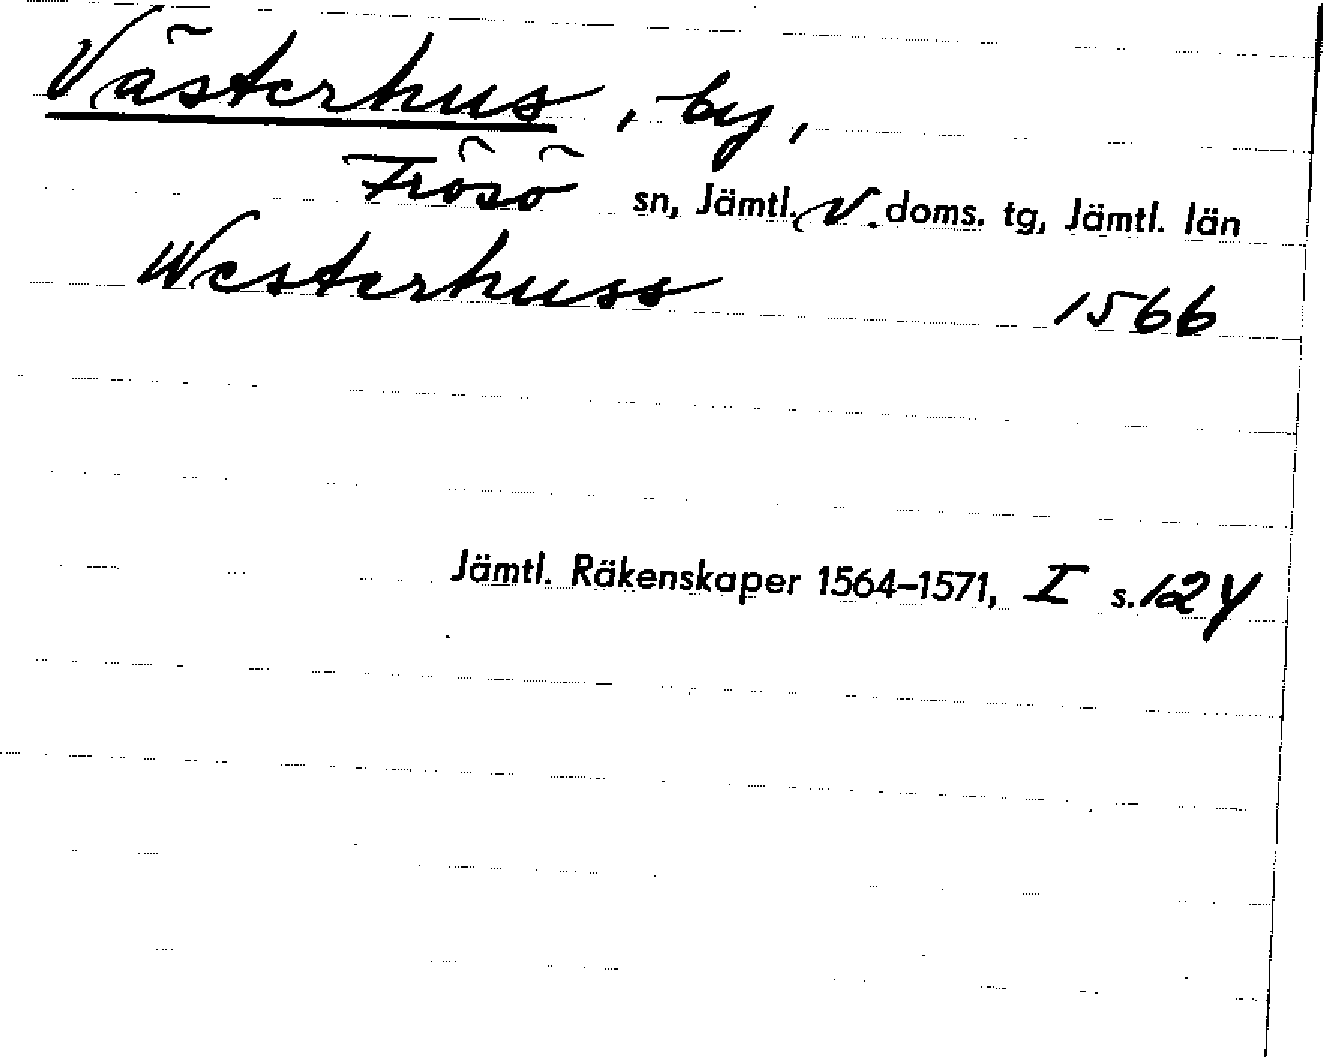 Västerhus, by,
Frösö sn, Jämtl. V. doms. tg, Jämtl. län
Westerhuss 1566
Jämtl. Räkenskaper 1564–1571, I s. 124